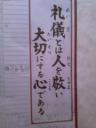 礼儀とは人を敬い
大切にする心である